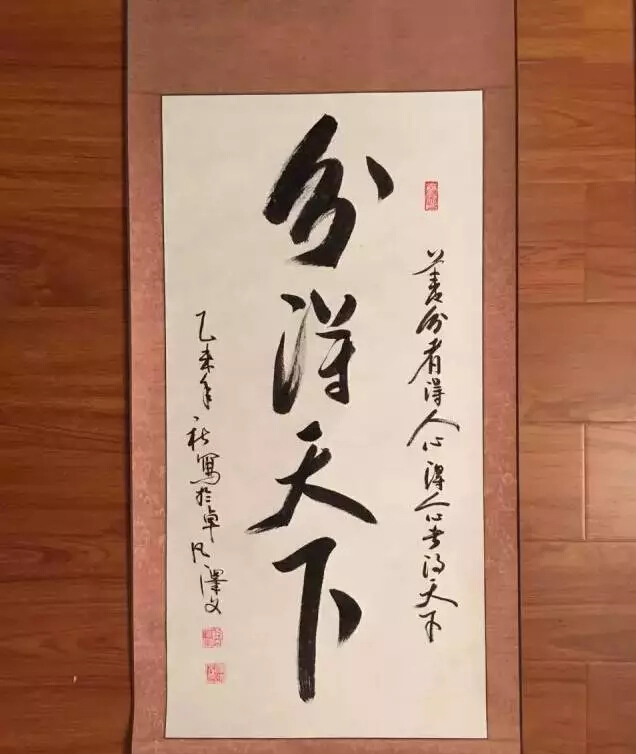 善分者得人心得人心者得天下
分得天下
乙未年秋寫於卓凡澤文